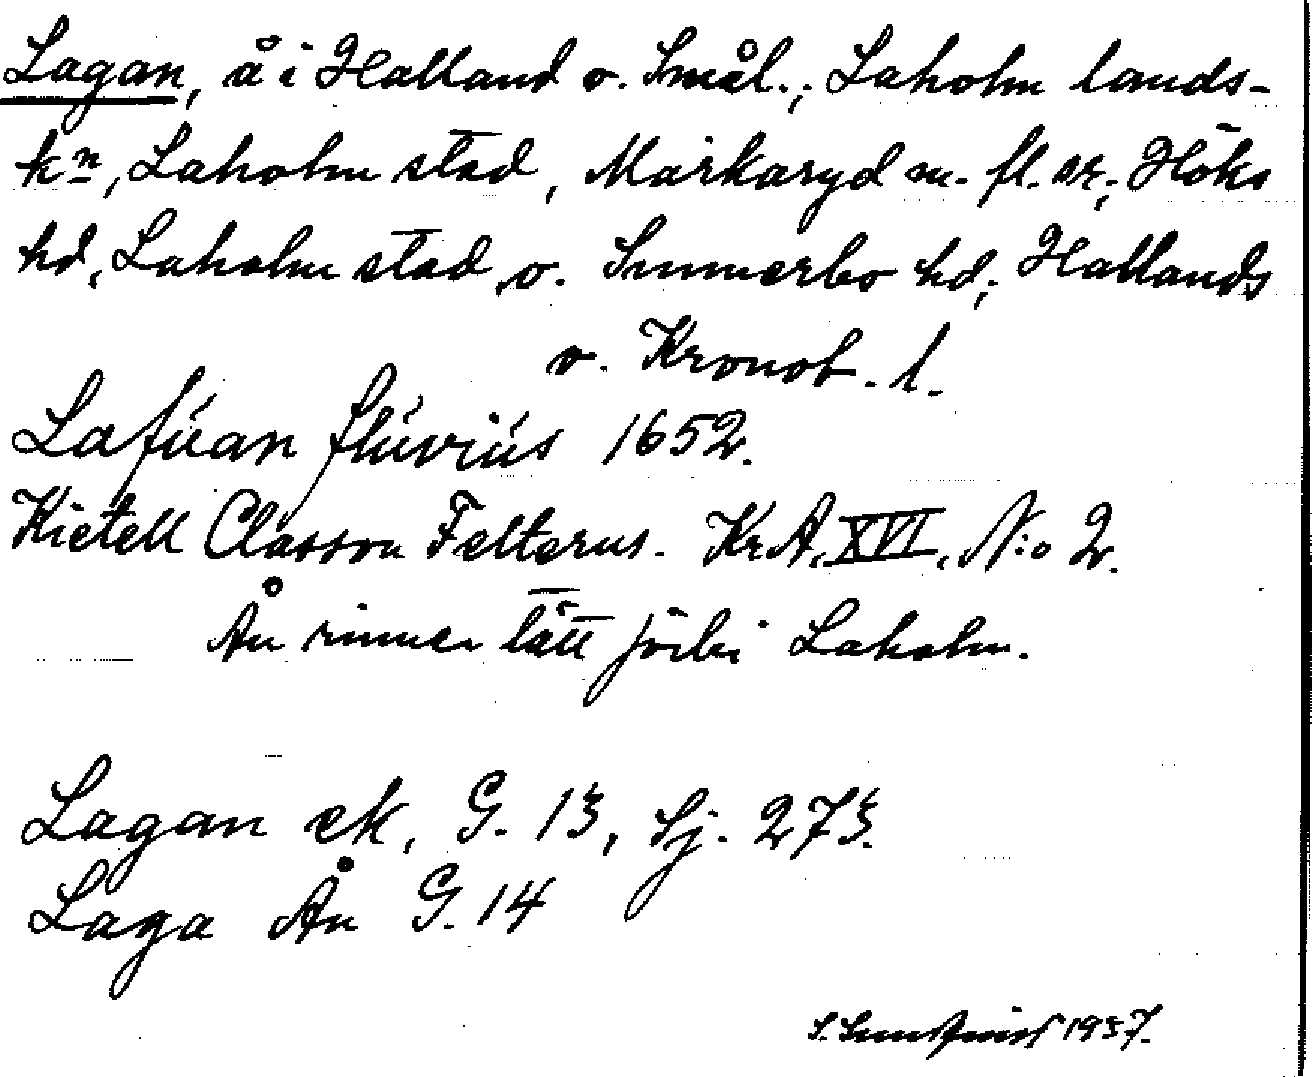 Lagan, å i Halland o. Smål.; Laholm lands-
kn, Laholm stad, Markaryd m. fl. sr; Höks
hd, Laholm stad, o. Sunnerbo hd; Hallands
o. Kronob. l.
Lafúan flúviús 1652.
Kietell Classon Felterus. KrA. XVI. N:o 2.
Ån rinner tätt förbi Laholm.
Lagan ek. G. 13, Sj. 273.
Laga Ån G. 14
1937.